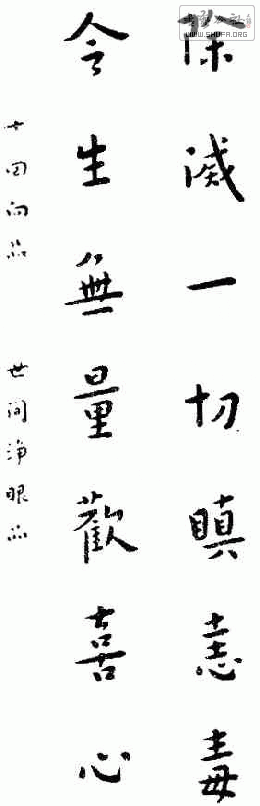 除滅一切瞋恚毒
令生無量歡喜心
十回向品 世間淨眼品
SHUFA.ORG